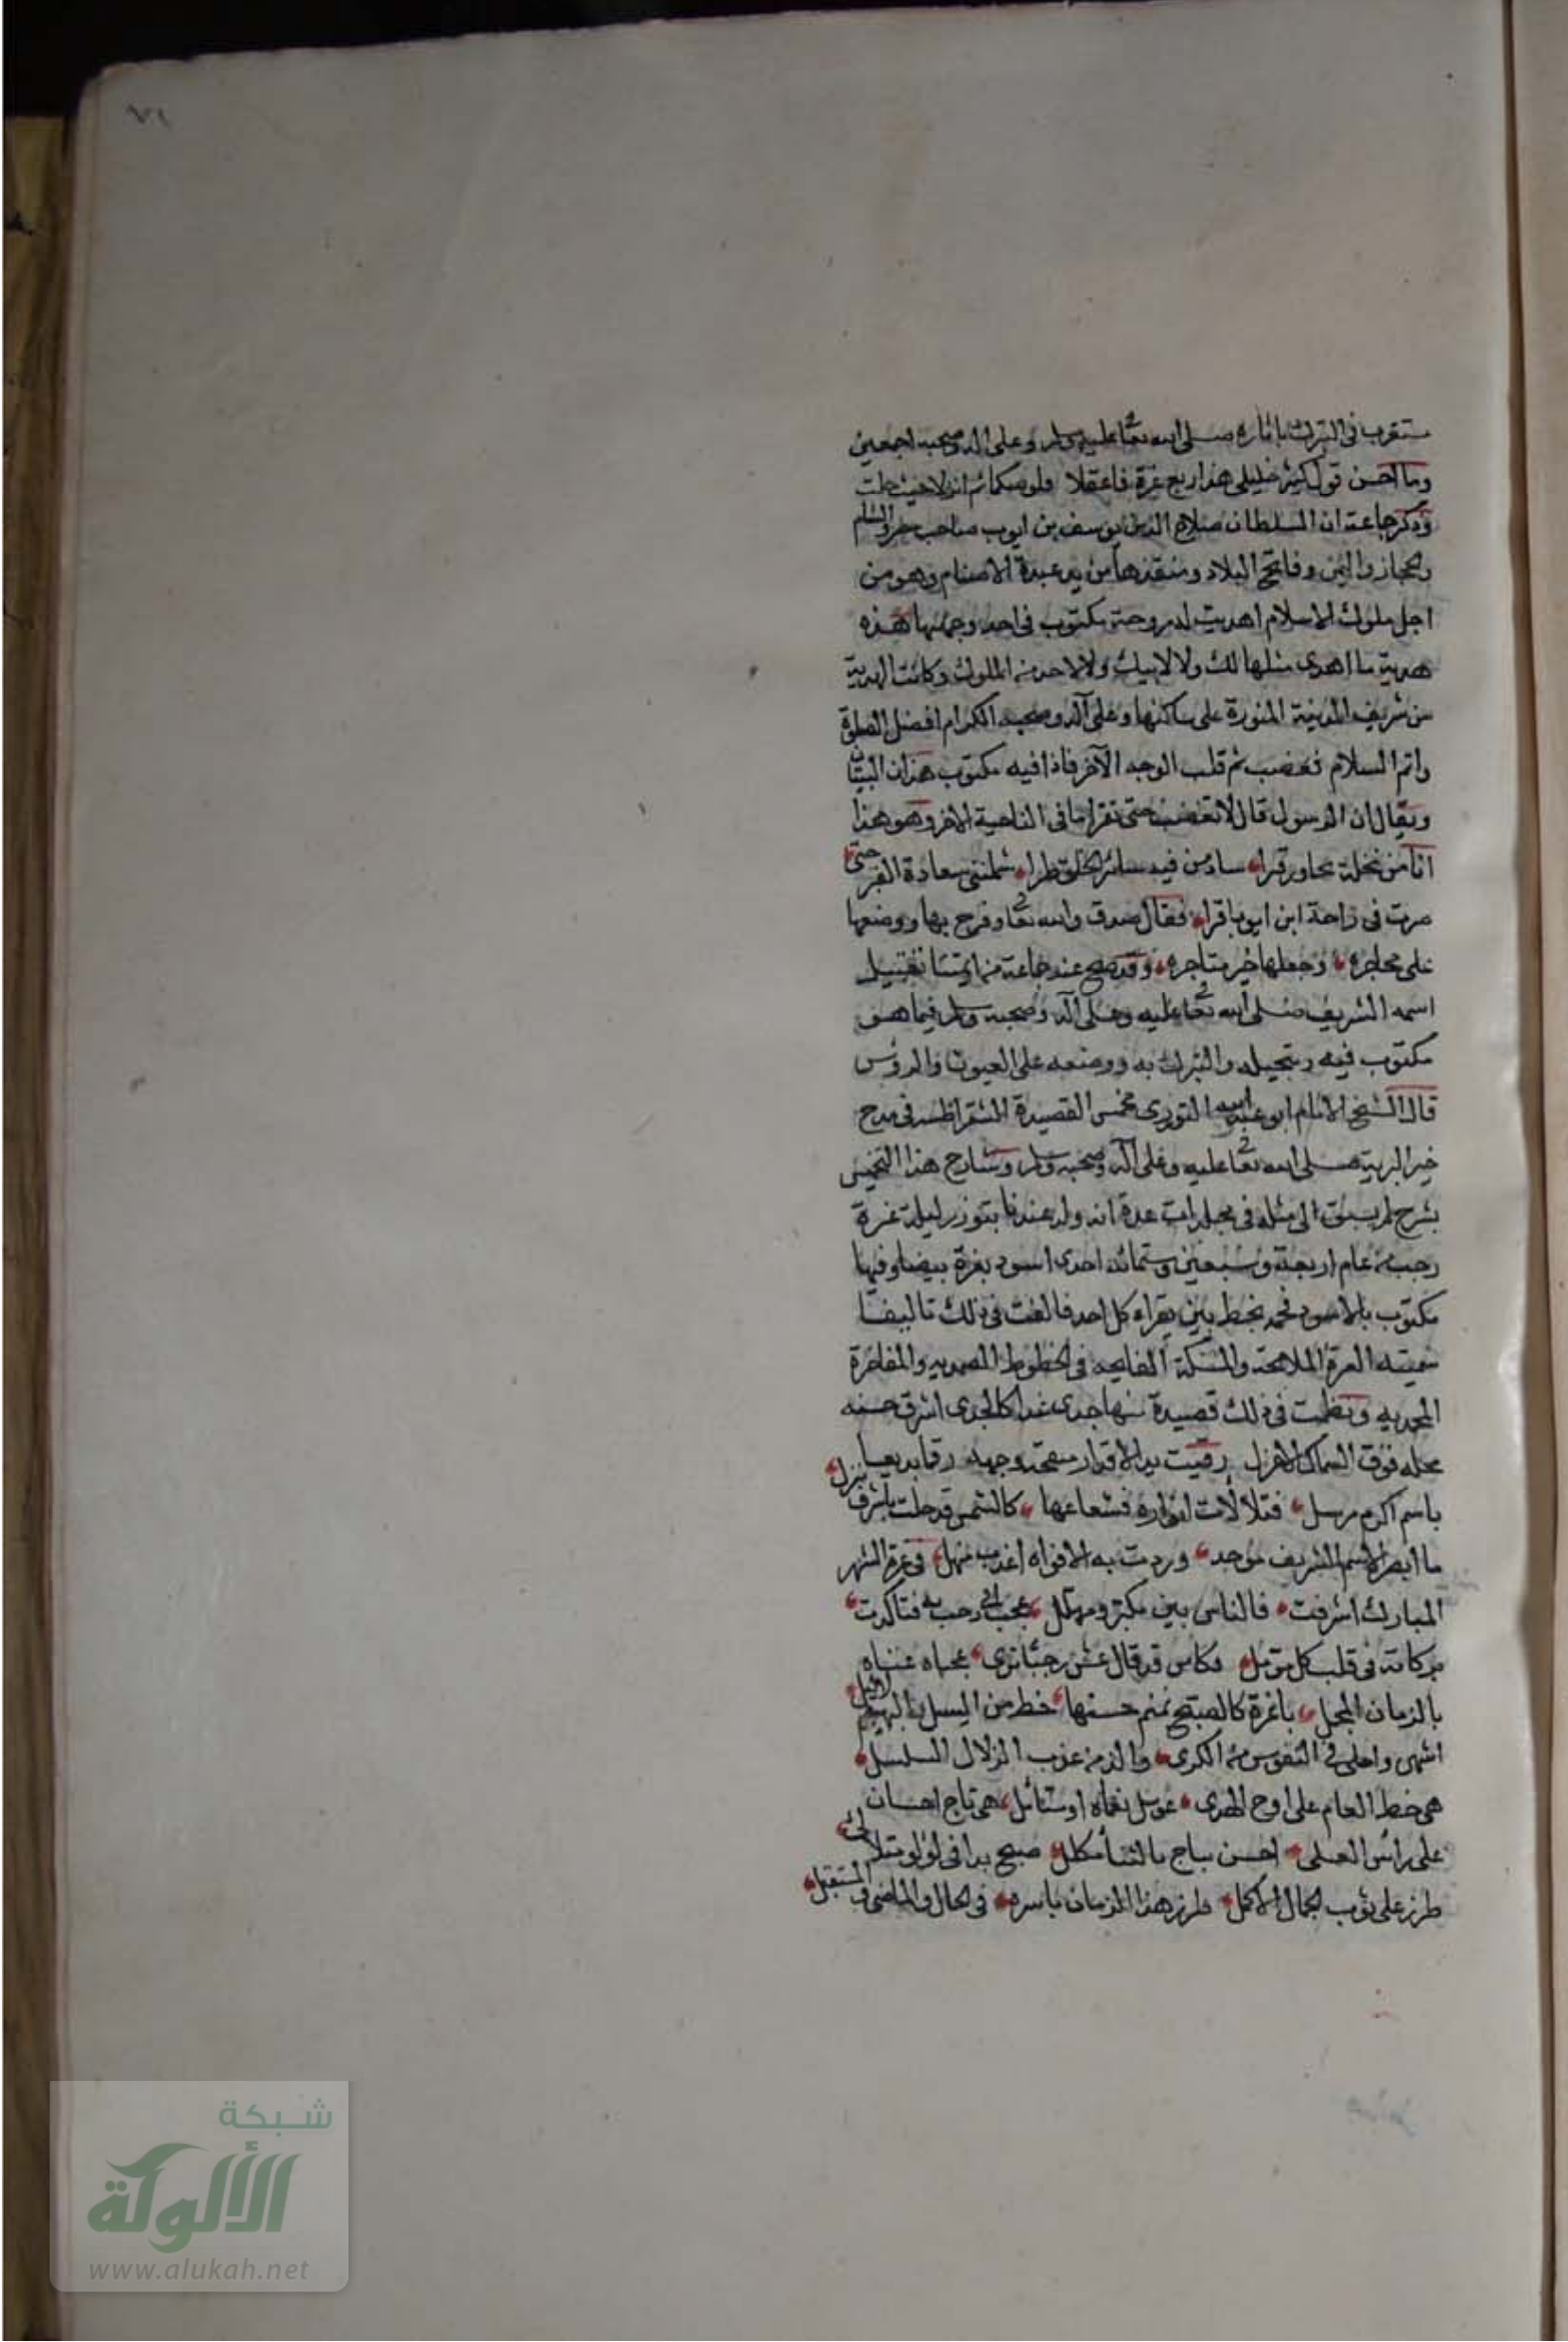 ٧١
مستغرب في التبرك باثاره صلى الله تعا عليه وسلم وعلى اله وصحبه اجمعين
وما احسن قول كثير خليلى هذا ربع عزة فاعقلا قلوصيكما ثم انزلا حيث حلت
وذكر جماعة ان السلطان صلاح الدين يوسف بن ايوب صاحب مصر والشام
والحجاز واليمن وفاتح البلاد ومنقذها من يد عبدة الاصنام وهو من
اجل ملوك الاسلام اهديت له مروحة مكتوب في احد وجهيها هذه
هدية ما اهدى مثلها لك ولا لابيك ولا لاحد من الملوك وكانت الهدية
من شريف المدينة المنورة على ساكنها وعلى آله وصحبه الكرام افضل الصلوة
واتم السلام فغضب ثم قلب الوجه الآخر فاذا فيه مكتوب هذان البيتان
ويقال ان الرسول قال لا تغضب حتى تقرا ما في الناحية الاخر وهو هذا
انا من نخلة تجاور قبرا ساد من فيه سائر الخلق طرا شملتنى سعادة القبر حتى
صرت في راحة ابن ايوب اقرا فقال صدق والله تعا وفرح بها ووضعها
على محاجره وجعلها خير متاجره وقد صح عند جماعة تقبيل
اسمه الشريف صلى الله تعا عليه وعلى آله وصحبه وسلم فيما هو
مكتوب فيه وتبجيله والتبرك به ووضعه على العيون والرؤس
قال الشيخ الامام ابو عبد الله التوزرى مخمس القصيدة الشقراطسه في مدح
خير البرية صلى الله تعا عليه وعلى آله وصحبه وسلم وشارح هذا التخميس
بشرح لم يسبق الى مثله في مجلدات عدة انه ولد عندنا بتوزر ليلة غرة
رجب من عام اربعة وسبعين وستمائة جدى اسود بغرة بيضا وفيها
مكتوب بالاسود محمد بخط بين يقراه كل احد فالفت في ذلك تاليفا
سميته الغرة اللائحة والمسكة الفايحه في الخطوط الصمديه والمفاخرة
المحمديه ونظمت في ذلك قصيدة منها جدى غدا كالجدى اشرق حسنه
محله فوق السماك الاعزل رقمت يد الاقدار صفحة وجهه رقما بديعا
باسم اكرم مرسل فتلألأت انواره فشعاعها كالشمس قد حلت باشرف منزل
ما ابصر الاسم الشريف موحد وردت به الافواه اعذب منهل في غرة الشهر
المبارك اشرفت فالناس بين مكبر ومهلل عجب اتى رجب به فتاكدت
بركاته في قلب كل مؤمل قد قال عش رجبا ترى
بالزمان المجل يا غرة كالصبح نمنم حسنها خط من الليل البهيم الاليل
اشهى واحلى في النفوس من الكرى والذ من عذب الزلال السلسل
هى خط العام على اوج الهدى هى تاج احسان
على راس العلى احسن بتاج بالثنا مكلل صبح بدا في لؤلؤ متلالئ
طرز على ثوب الجمال الاكمل طرز هذا الزمان باسره في الحال والماضى والمستقبل
شبكة
الألوكة
www.alukah.net